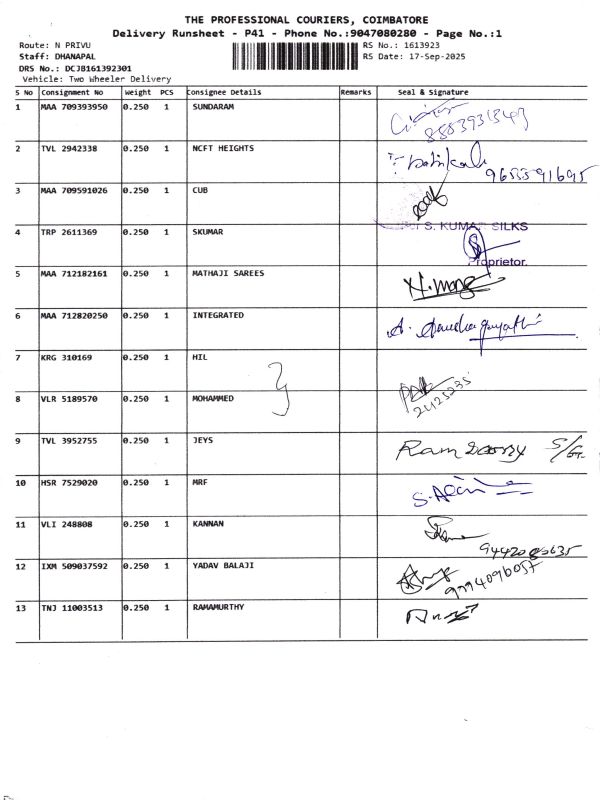 THE PROFESSIONAL COURIERS, COIMBATORE
Delivery Runsheet - P41 - Phone No.:9047080280 - Page No.:1
Route: N PRIVU RS No.: 1613923
Staff: DHANAPAL RS Date: 17-Sep-2025
DRS No.: DCJB161392301
Vehicle: Two Wheeler Delivery
S No Consignment No Weight PCS Consignee Details Remarks Seal & Signature
1 MAA 709393950 0.250 1 SUNDARAM
2 TVL 2942338 0.250 1 NCFT HEIGHTS
9655591695
3 MAA 709591026 0.250 1 CUB
4 TRP 2611369 0.250 1 SKUMAR S. KUMAR SILKS
Proprietor.
5 MAA 712182161 0.250 1 MATHAJI SAREES
6 MAA 712820250 0.250 1 INTEGRATED
7 KRG 310169 0.250 1 HIL
8 VLR 5189570 0.250 1 MOHAMMED
9 TVL 3952755 0.250 1 JEYS
10 HSR 7529020 0.250 1 MRF
11 VLI 248808 0.250 1 KANNAN
12 IXM 509037592 0.250 1 YADAV BALAJI
13 TNJ 11003513 0.250 1 RAMAMURTHY